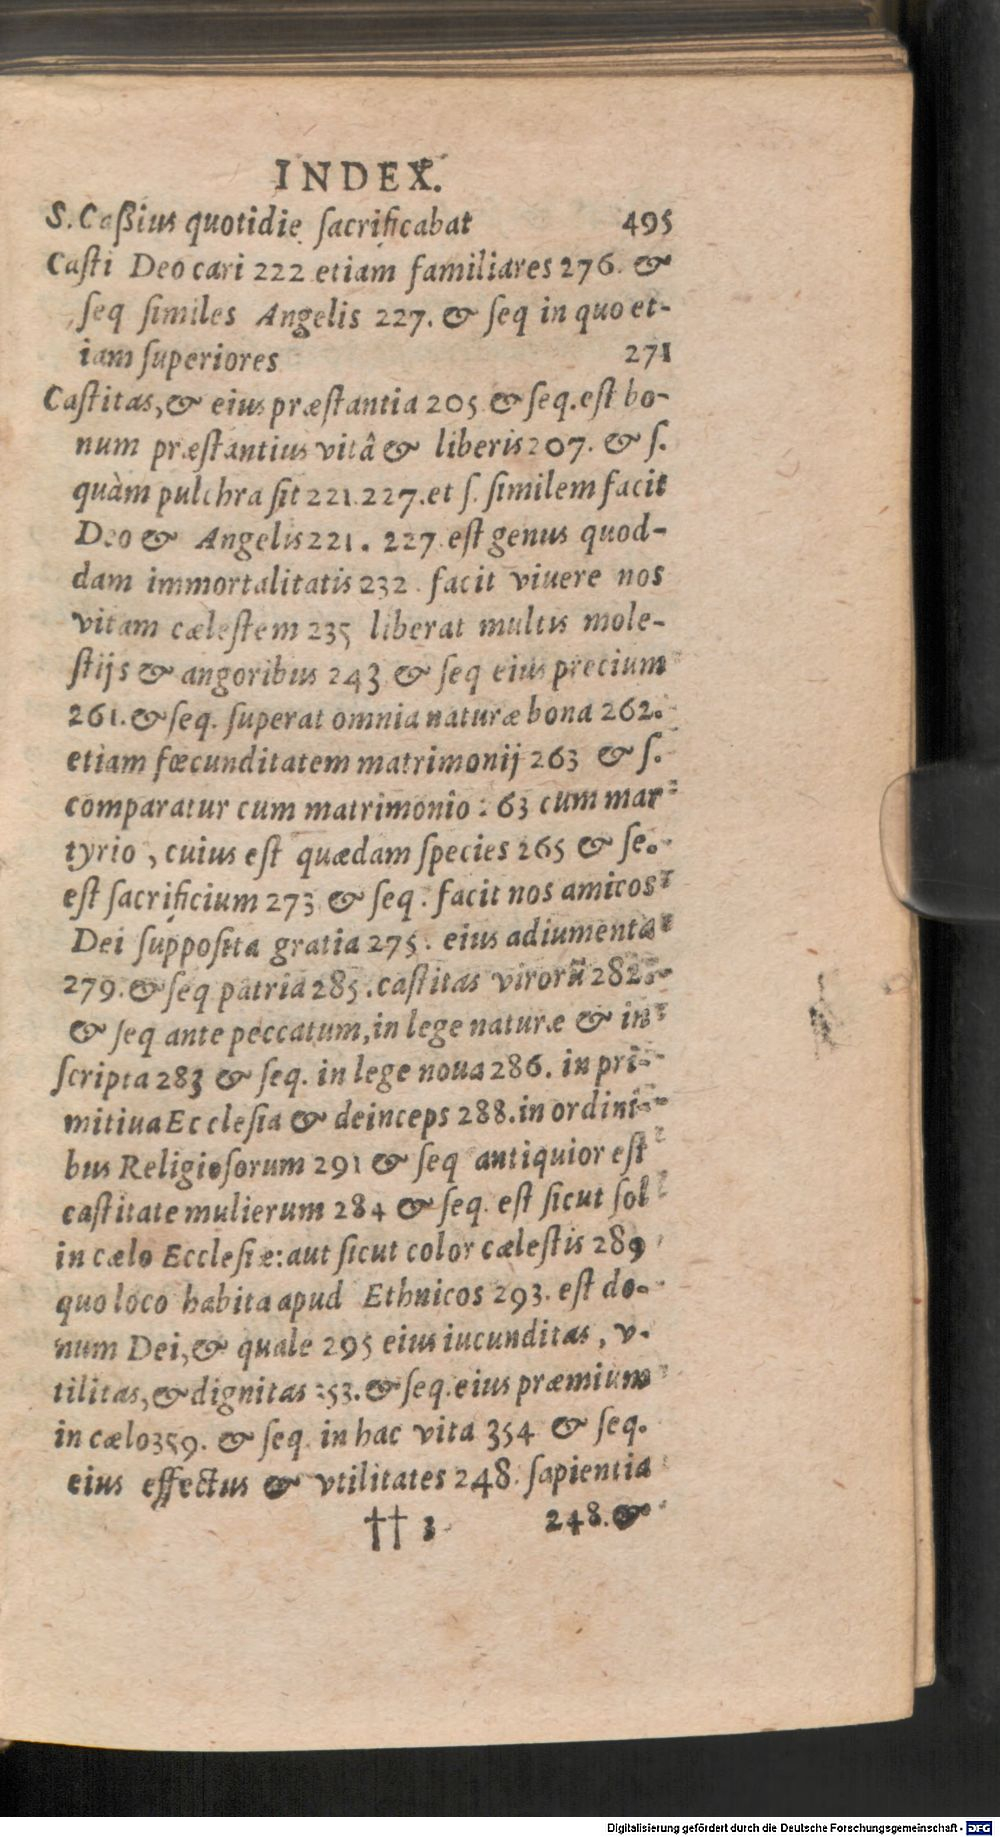 INDEX.
S. Caßius quotidie ſacrificabat 495
Caſti Deo cari 222 etiam familiares 276. &
ſeq ſimiles Angelis 227. & ſeq in quo et-
iam ſuperiores 271
Caſtitas, & eius præſtantia 205 & ſeq. eſt bo-
num præſtantius vitâ & liberis 207. & ſ.
quàm pulchra ſit 221.227. et ſ. ſimilem facit
Deo & Angelis 221. 227. eſt genus quod-
dam immortalitatis 232. facit viuere nos
vitam cæleſtem 235 liberat multis mole-
ſtijs & angoribus 243 & ſeq eius precium
261. & ſeq. ſuperat omnia naturæ bona 262.
etiam fœcunditatem matrimonij 263 & ſ.
comparatur cum matrimonio 263 cum mar-
tyrio, cuius eſt quædam ſpecies 265 & ſe.
eſt ſacrificium 273 & ſeq. facit nos amicos
Dei ſuppoſita gratia 275. eius adiumenta
279. & ſeq patria 285. caſtitas virorũ 282.
& ſeq ante peccatum, in lege naturæ & in
ſcripta 283 & ſeq. in lege noua 286. in pri-
mitiua Eccleſia & deinceps 288. in ordini-
bus Religioſorum 291 & ſeq antiquior eſt
caſtitate mulierum 284 & ſeq. eſt ſicut ſol
in cælo Eccleſiæ: aut ſicut color cæleſtis 289
quo loco habita apud Ethnicos 293. eſt do-
num Dei, & quale 295 eius iucunditas, v-
tilitas, & dignitas 353. & ſeq. eius præmium
in cælo 359. & ſeq. in hac vita 354 & ſeq.
eius effectus & vtilitates 248. ſapientia
†† 3 248. &
Digitalisierung gefördert durch die Deutsche Forschungsgemeinschaft - DFG